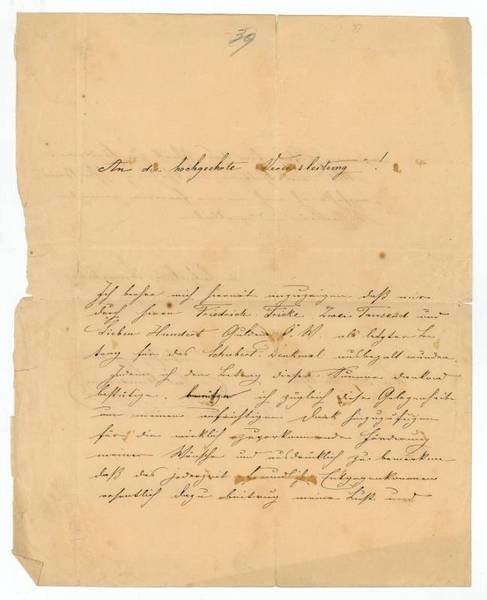 39
An die hochgeehrte Vereinsleitung!
Ich beehre mich hiermit anzuzeigen daß mir
durch Herrn Friedrich Fricke Zwei Tausend und
Sieben Hundert Gulden Ö. W. als letzter Be
trag für das Schubert-Denkmal ausbezalt wurden.
Indem ich den Betrag dieser Summe dankend
bestätige, benütze ich zugleich diese Gelegenheit
um meinen aufrichtigen Dank hinzuzufügen
für die wirklich zuvorkommende Förderung
meiner Wünsche und ausdrücklich zu bemerken
daß das jederzeit freundliche Entgegenkommen
wesentlich dazu beitrug meine Lust und